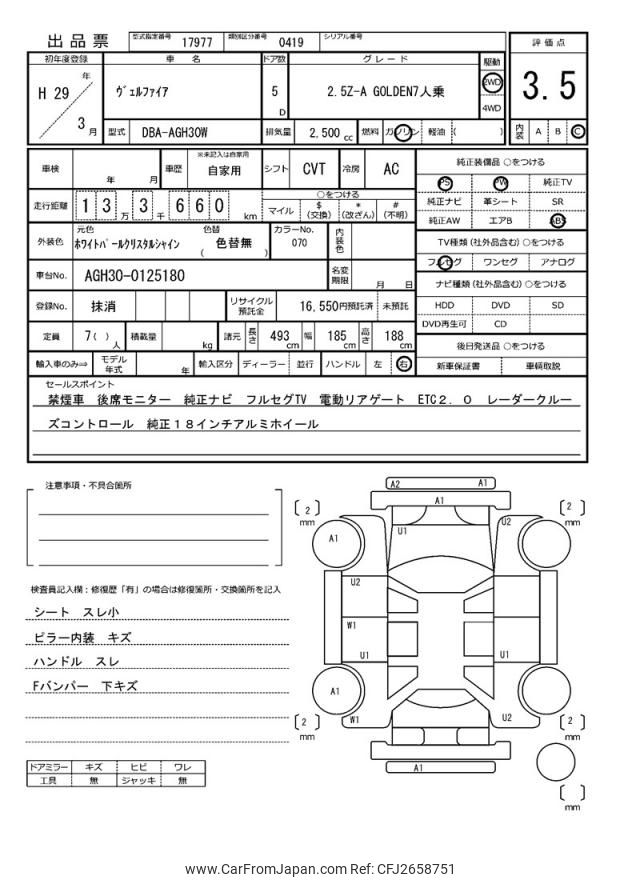 出品票 型式指定番号 17977 類別区分番号 0419 シリアル番号
初年度登録 車名 ドア数 グレード 駆動 評価点
H 29 年 3 月 ヴェルファイア 5 D 2.5Z-A GOLDEN7人乗 2WD 4WD 3.5
型式 DBA-AGH30W 排気量 2,500 cc 燃料 ガソリン 軽油 ( ) 内装 A B C
車検 年 月 車歴 ※未記入は自家用 自家用 シフト CVT 冷房 AC 純正装備品 ○をつける
PS PW 純正TV
走行距離 1 3 万 3 千 6 6 0 km ○をつける マイル $ (交換) * (改ざん) # (不明)
純正ナビ 革シート SR
純正AW エアB ABS
外装色 元色 ホワイトパールクリスタルシャイン 色替 ( 色替無 ) カラーNo. 070 内装色
TV種類 (社外品含む) ○をつける
フルセグ ワンセグ アナログ
車台No. AGH30-0125180 名変期限 月 日
ナビ種類 (社外品含む) ○をつける
登録No. 抹消 リサイクル預託金 16,550円預託済 未預託
HDD DVD SD
DVD再生可 CD
定員 7( ) 人 積載量 kg 諸元 長さ 493 cm 幅 185 cm 高さ 188 cm
後日発送品 ○をつける
輸入車のみ⇒ モデル年式 年 輸入区分 ディーラー 並行 ハンドル 左 右 新車保証書 車輌取説
セールスポイント
禁煙車 後席モニター 純正ナビ フルセグTV 電動リアゲート ETC2.0 レーダークルー
ズコントロール 純正18インチアルミホイール
注意事項・不具合箇所
検査員記入欄：修復歴「有」の場合は修復箇所・交換箇所を記入
シート スレ小
ピラー内装 キズ
ハンドル スレ
Fバンパー 下キズ
ドアミラー キズ ヒビ ワレ
工具 無 ジャッキ 無
A2 A1
A1
[ 2 ] mm [ 2 ] mm
U1 U2
A1
U2
W1
U1 U1
A1
W1 U2
[ 2 ] mm [ 2 ] mm
A1
[ ] mm
www.CarFromJapan.com Ref: CFJ2658751